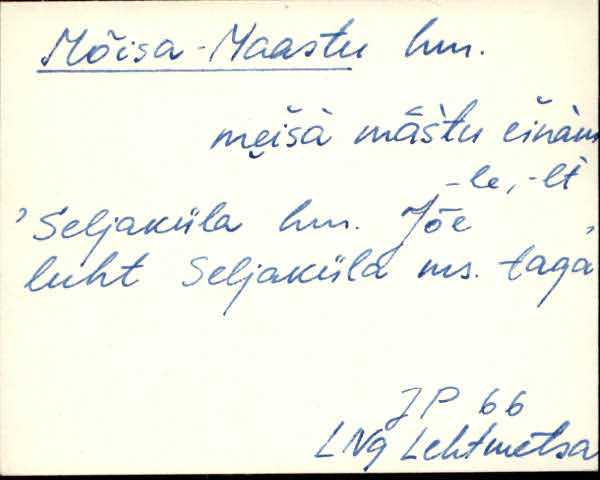 Mõisa-Maastu hm.
mẹišà māštu eìnàm
-le, -lt
'Seljaküla hm. Jõe
luht Seljaküla ms. taga'
JP 66
LNg Lehtmetsa